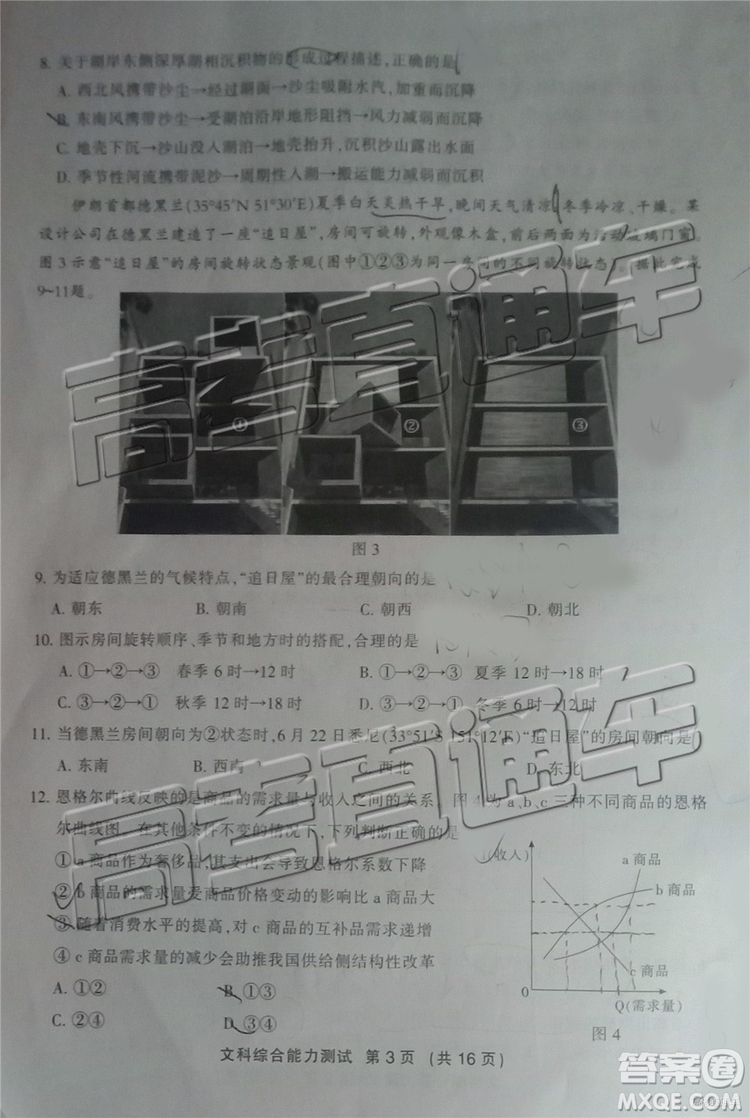 8. 关于湖岸东侧深厚湖相沉积物的形成过程描述,正确的是
A. 西北风携带沙尘→经过湖面→沙尘吸附水汽,加重而沉降
B. 东南风携带沙尘→受湖泊沿岸地形阻挡→风力减弱而沉降
C. 地壳下沉→沙山没入湖泊→地壳抬升,沉积沙山露出水面
D. 季节性河流携带泥沙→周期性入湖→搬运能力减弱而沉积
伊朗首都德黑兰(35°45′N 51°30′E)夏季白天炎热干旱,晚间天气清凉,冬季冷凉、干燥。某
设计公司在德黑兰建造了一座“追日屋”,房间可旋转,外观像木盒,前后面为活动玻璃门窗。
图3示意“追日屋”的房间旋转状态景观(图中①②③为同一房间的不同旋转状态)。据此完成
9~11题。
① ② ③
图3
9. 为适应德黑兰的气候特点,“追日屋”的最合理朝向的是
A. 朝东 B. 朝南 C. 朝西 D. 朝北
10. 图示房间旋转顺序、季节和地方时的搭配,合理的是
A. ①→②→③ 春季6时→12时 B. ①→②→③ 夏季12时→18时
C. ③→②→① 秋季12时→18时 D. ③→②→① 冬季6时→12时
11. 当德黑兰房间朝向为②状态时,6月22日悉尼(33°51′S 151°12′E)“追日屋”的房间朝向是
A. 东南 B. 西南 C. 西北 D. 东北
12. 恩格尔曲线反映的是商品的需求量与收入之间的关系。图4为a,b,c三种不同商品的恩格
尔曲线图。在其他条件不变的情况下,下列判断正确的是
①a商品作为奢侈品,其支出会导致恩格尔系数下降
②b商品的需求量受商品价格变动的影响比a商品大
③随着消费水平的提高,对c商品的互补品需求递增
④c商品需求量的减少会助推我国供给侧结构性改革
A. ①② B. ①③
C. ②④ D. ③④
(收入)
a商品
b商品
c商品
0
Q(需求量)
图4
文科综合能力测试 第3页 (共16页)
高考直通车
高考直通车
答案圈
MXQE.COM